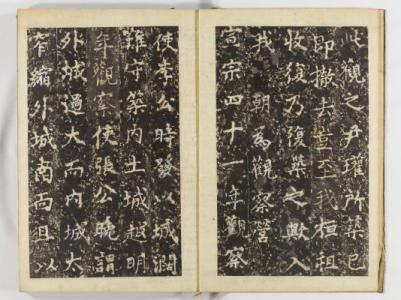 此觀之尹瓘所築已
即撤去豈至我桓祖
收復乃復築之歟入
我朝爲觀察營
宣宗四十一年觀察
使李公時發以城濶
難守築內土城越明
年觀察使張公晚謂
外城過大而內城太
窄縮外城南面且以